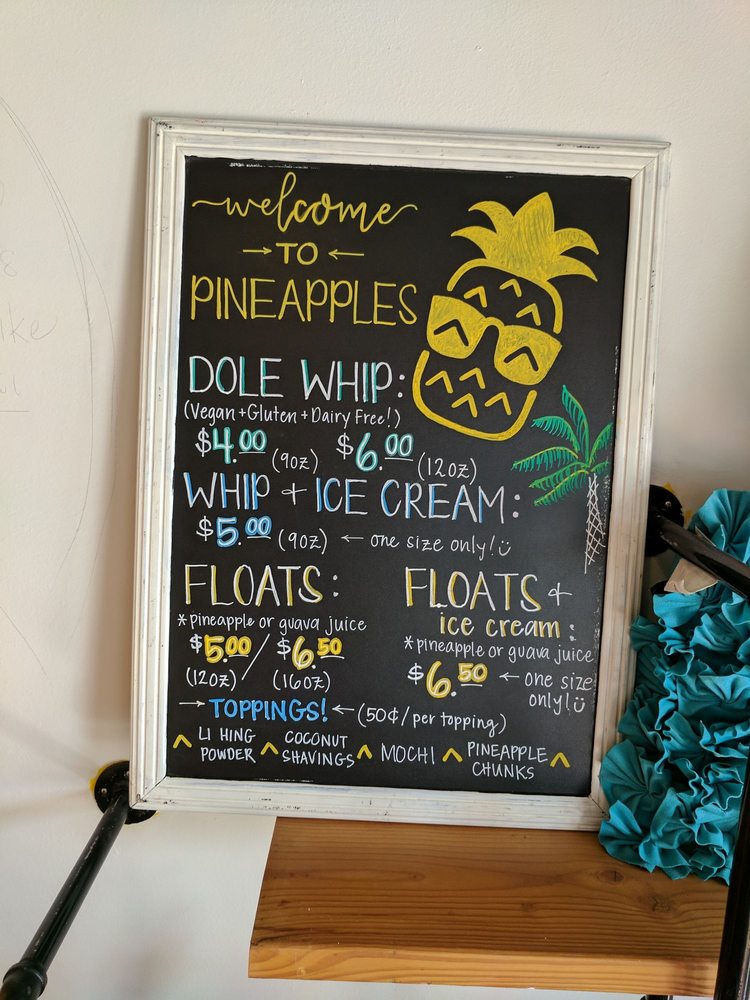 welcome
→ TO ←
PINEAPPLES
DOLE WHIP:
(Vegan+Gluten+Dairy Free!)
$4.00 (9oz) $6.00 (12oz)
WHIP + ICE CREAM:
$5.00 (9oz) ← one size only!
FLOATS:
*pineapple or guava juice
$5.00 / $6.50
(12oz) (16oz)
FLOATS +
ice cream:
*pineapple or guava juice
$6.50 ← one size
only!
→ TOPPINGS! ← (50¢/per topping)
LI HING
POWDER
COCONUT
SHAVINGS
MOCHI
PINEAPPLE
CHUNKS